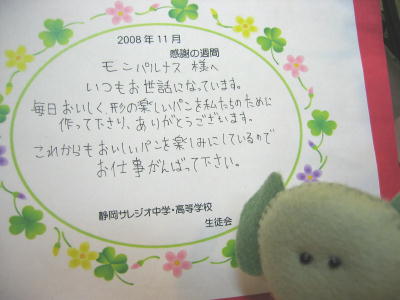 2008年11月
感謝の週間
モンパルナス 様へ
いつもお世話になっています。
毎日おいしく、形の楽しいパンを私たちのために
作って下さり、ありがとうございます。
これからもおいしいパンを楽しみにしているので
お仕事がんばって下さい。
静岡サレジオ中学・高等学校
生徒会